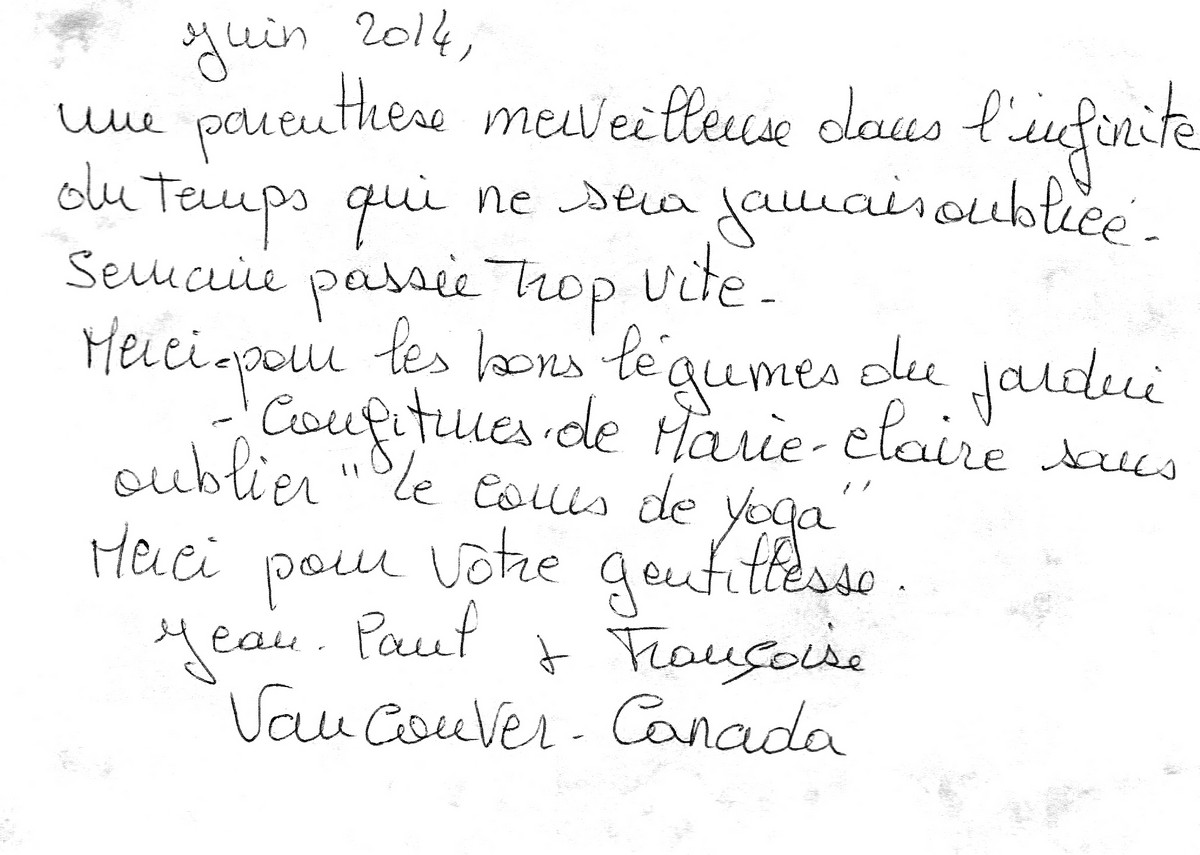 Juin 2014,
une parenthese merveilleuse dans l'infinite
du temps qui ne sera jamais oubliée -
Semaine passée trop vite -
Merci - pour les bons légumes du jardin
- Confitures de Marie-Claire sans
oublier "le cours de yoga"
Merci pour votre gentillesse.
Jean. Paul & Françoise
Vancouver - Canada